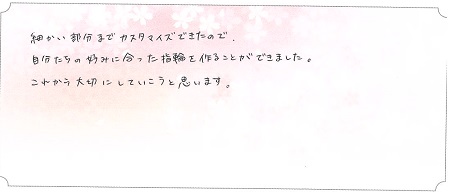 細かい部分までカスタマイズできたので、
自分たちの好みに合った指輪を作ることができました。
これから大切にしていこうと思います。